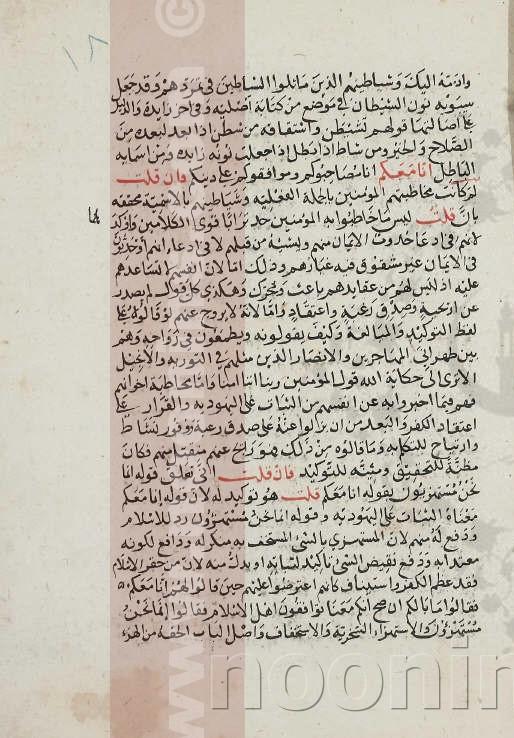 ١٨
واذمه اليك وشياطينهم الذين ماثلوا الشياطين في تمردهم وقد جعل
سيبويه نون الشيطان في موضع من كتابه اصلية وفي اخر زايدة والدليل
على اصالتها قولهم تشيطن واشتقاقه من شطن اذا بعد لبعده من
الصلاح والخير ومن شاط اذا بطل اذا جعلت نونه زايدة ومن اسمايه
الباطل انا معكم انا مصاحبوكم وموافقوكم على دينكم فان قلت
لم كانت مخاطبتهم المومنين بالجملة الفعلية وشياطينهم بالاسمية محققة
بان قلت ليس ما خاطبوا به المومنين جديرا باقوى الكلامين واوكدهما
لانهم في ادعا حدوث الايمان منهم ونشيه من قبلهم لا في ادعا انهم اوحديون
في الايمان غير مشقوق فيه غبارهم وذلك اما لان انفسهم لا تساعدهم
عليه اذ ليس لهم من عقايدهم باعث ومحرك وهكذا كل قول لم يصدر
عن اريحية وصدق رغبة واعتقاد واما لانه لا يروج عنهم لو قالوه على
لفظ التوكيد والمبالغة وكيف يقولونه ويطمعون في رواجه وهم
بين ظهراني المهاجرين والانصار الذين مثلهم في التوريه والانجيل
الا ترى الى حكاية الله قول المومنين ربنا اننا امنا واما مخاطبة اخوانهم
فهم فيما اخبروا به عن انفسهم من الثبات على اليهودية والقرار على
اعتقاد الكفر والبعد من ان يزلوا عنه على صدق رغبة ووفور نشاط
وارتياح للتكلم به وما قالوه من ذلك فهو رايج عنهم متقبل منهم فكان
مظنة للتحقيق ومئنة للتوكيد فان قلت انى تعلق قوله انما
نحن مستهزؤن بقوله انا معكم قلت هو توكيد له لان قوله انا معكم
معناه الثبات على اليهودية وقوله انما نحن مستهزؤن رد للاسلام
ودفع له منهم لان المستهزئ بالشي المستخف به منكر له ودافع لكونه
معتدا به ودفع نقيض الشي تاكيد لثباته او بدل منه لان من حقر الاسلام
فقد عظم الكفر او استيناف كانهم اعترضوا عليهم حين قالوا لهم انا معكم
فقالوا فما بالكم ان صح انكم معنا توافقون اهل الاسلام فقالوا انما نحن
مستهزؤن والاستهزاء السخرية والاستخفاف واصل الباب الخفة من الهزء
www
noonin